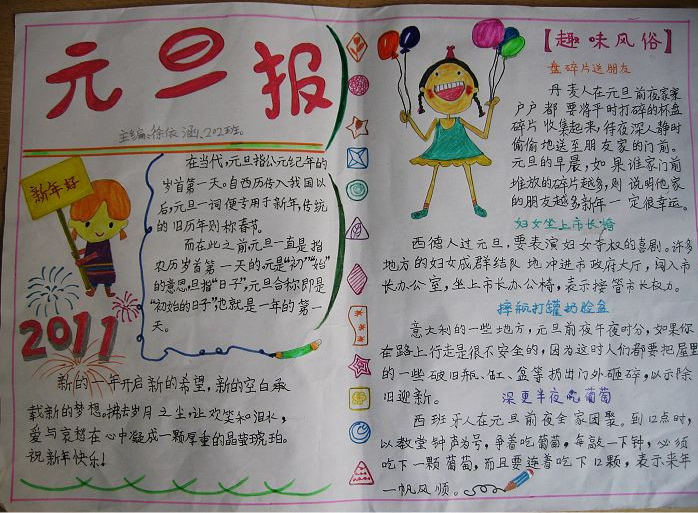 元旦报
主编:徐依涵,202班.
新年好
2011
在当代,元旦指公元纪年的
岁首第一天。自西历传入我国以
后,元旦一词便专用于新年,传统
的旧历年则称春节。
而在此之前元旦一直是指
农历岁首第一天的。元是“初”“始”
的意思,旦指“日子”,元旦合称即是
“初始的日子”,也就是一年的第一
天。
新的一年开启新的希望,新的空白承
载新的梦想。拂去岁月之尘,让欢笑和泪水,
爱与哀愁在心中凝成一颗厚重的晶莹琥珀。
祝新年快乐!
【趣味风俗】
盘碎片送朋友
丹麦人在元旦前夜家家
户户都要将平时打碎的杯盘
碎片收集起来,待夜深人静时
偷偷地送至朋友家的门前。
元旦的早晨,如果谁家门前
堆放的碎片越多,则说明他家
的朋友越多新年一定很幸运。
妇女坐上市长椅
西德人过元旦,要表演妇女夺权的喜剧。许多
地方的妇女成群结队地冲进市政府大厅,闯入市
长办公室,坐上市长办公椅,表示接管市长权力。
摔瓶打罐扔脸盆
意大利的一些地方,元旦前夜午夜时分,如果你
在路上行走是很不安全的,因为这时人们都要把屋里
的一些破旧瓶、缸、盆等扔出门外砸碎,以示除
旧迎新。
深更半夜吃葡萄
西班牙人在元旦前夜全家团聚。到12点时,
以教堂钟声为号,争着吃葡萄,每敲一下钟,必须
吃下一颗葡萄,而且要连着吃下12颗,表示来年
一帆风顺。